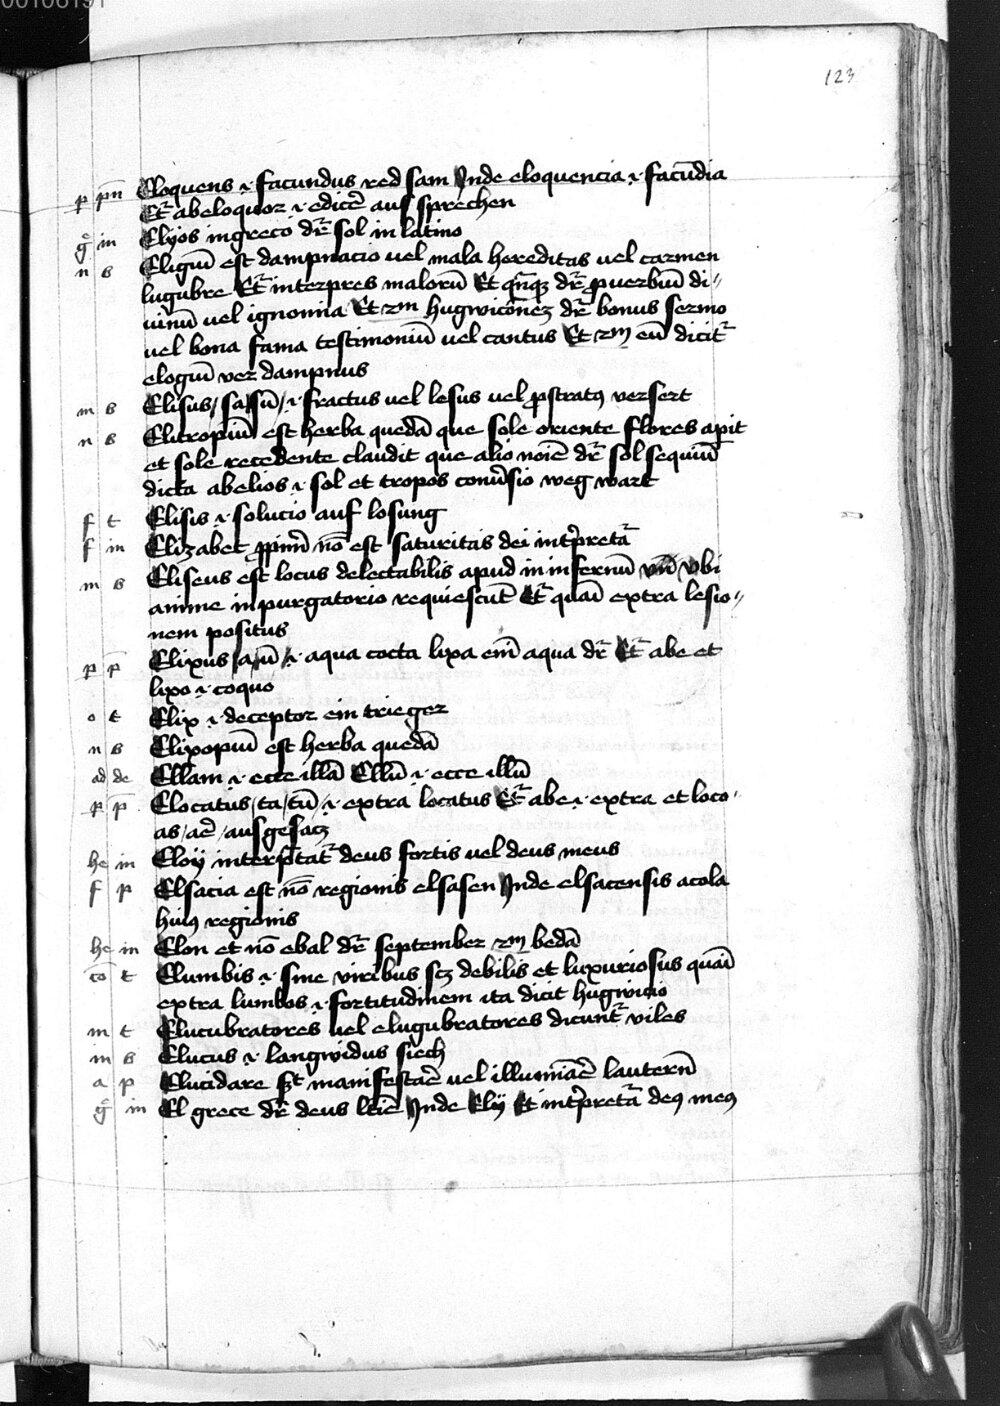 00106191
123
p pn̄ Eloquens .i. facundus red sam Inde eloquencia .i. facūdia
Et̄ abeloquor .i. edicē aus sprechen
g̊ in Elyos in greco dr̄ sol in latino
n s Eligiū est dampnacio vel mala hereditas vel carmen
lugubre Et̄ interpres malorū Et qn̄q; dr̄ ꝓverbiū di⸗
uinū vel ignomia Et 2m hugwicōnez dr̄ bonus sermo
vel bona fama testimoniū vel cantus Et 2m eū dicit᷑
elogiū ver dampnus
m s Elisus / sa / sū / .i. fractus vel lesus vel ꝓstratꝰ versert
n s Elitropiū est herba quedā que sole oriente flores apit
et sole recedente claudit que alio noīe dr̄ sol sequiū
dicta abelios .i. sol et tropos conuͥsio weg wart
f t Elisis .i. solucio auf losung
f in Elizabet ꝓpiū nō est saturitas dei intp̄retat᷑
m s Eliseus est locus delectabilis apud in infernū vbi
anime in purgatorio requiescūt Et᷑ quasi extra lesio⸗
nem positus
p p̄ Elixus / a / ū / .i. aqua cocta lixa em̄ aqua dr̄ Et᷑ ab e et
lixo .i. coquo
o t Elix .i. deceptor ein trieger
n s Elixopiū est herba quedā
ad de Ellam .i. ecce illā Ellū .i. ecce illū
p p̄ Elocatus / ta / tū / .i. extra locatus Et᷑ ab e .i. extra et loco⸗
as / ar̄ / ausgesacz
he in Eloy interp̄tat᷑ deus fortis vel deus meus
f p Elsacia est nō regionis elsasen Inde elsacensis acola
huiꝰ regionis
he in Elon et nō ebal dr̄ september 2m bedā
cō t Elumbis .i. sine viribus sc̄z debilis et luxuriosus quasi
extra lumbos .i. fortitudinem ita dicit hugwicio
m t Elucubratores vel elugubratores dicunt᷑ viles
m s Elucus .i. langwidus siech
a p Elucidare est manifestaꝛ̄ vel illumīaꝛ̄ lautern̄
g̊ in El grece dr̄ deus Inde Ely Et intp̄retat᷑ deꝰ meꝰ